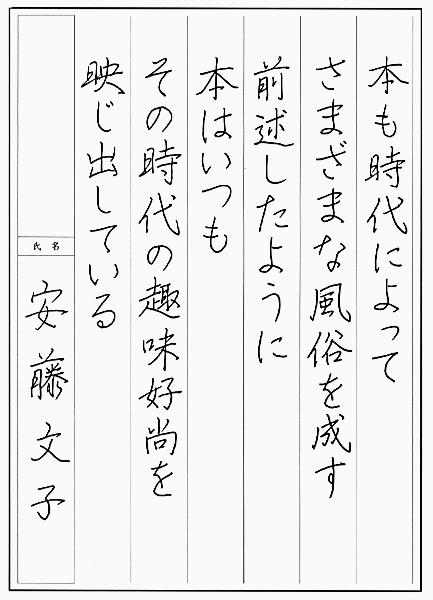 本も時代によって
さまざまな風俗を成す
前述したように
本はいつも
その時代の趣味好尚を
映じ出している
氏名
安藤文子